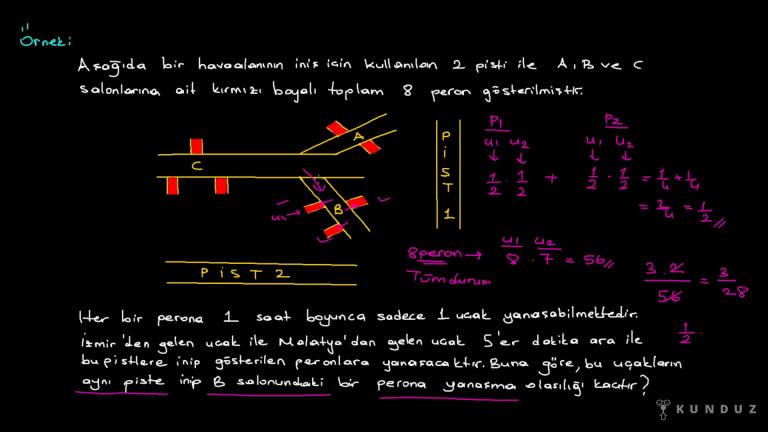 "
Örnek:
Aşağıda bir havaalanının iniş için kullanılan 2 pisti ile A, B ve C
salonlarına ait kırmızı boyalı toplam 8 peron gösterilmiştir.
A
C
B
u₁ →
PİST 1
PİST 2
P₁ P₂
u₁ u₂ u₁ u₂
↓ ↓ ↓ ↓
1/2 . 1/2 + 1/2 . 1/2 = 1/4 + 1/4
= 2/4 = 1/2 //
8 peron → u₁ u₂
8 . 7 = 56 //
Tüm durum
3.2/56 = 3/28
1/2 .
Her bir perona 1 saat boyunca sadece 1 uçak yanaşabilmektedir.
İzmir'den gelen uçak ile Malatya'dan gelen uçak 5'er dakika ara ile
bu pistlere inip gösterilen peronlara yanaşacaktır. Buna göre, bu uçakların
aynı piste inip B salonundaki bir perona yanaşma olasılığı kaçtır?
KUNDUZ